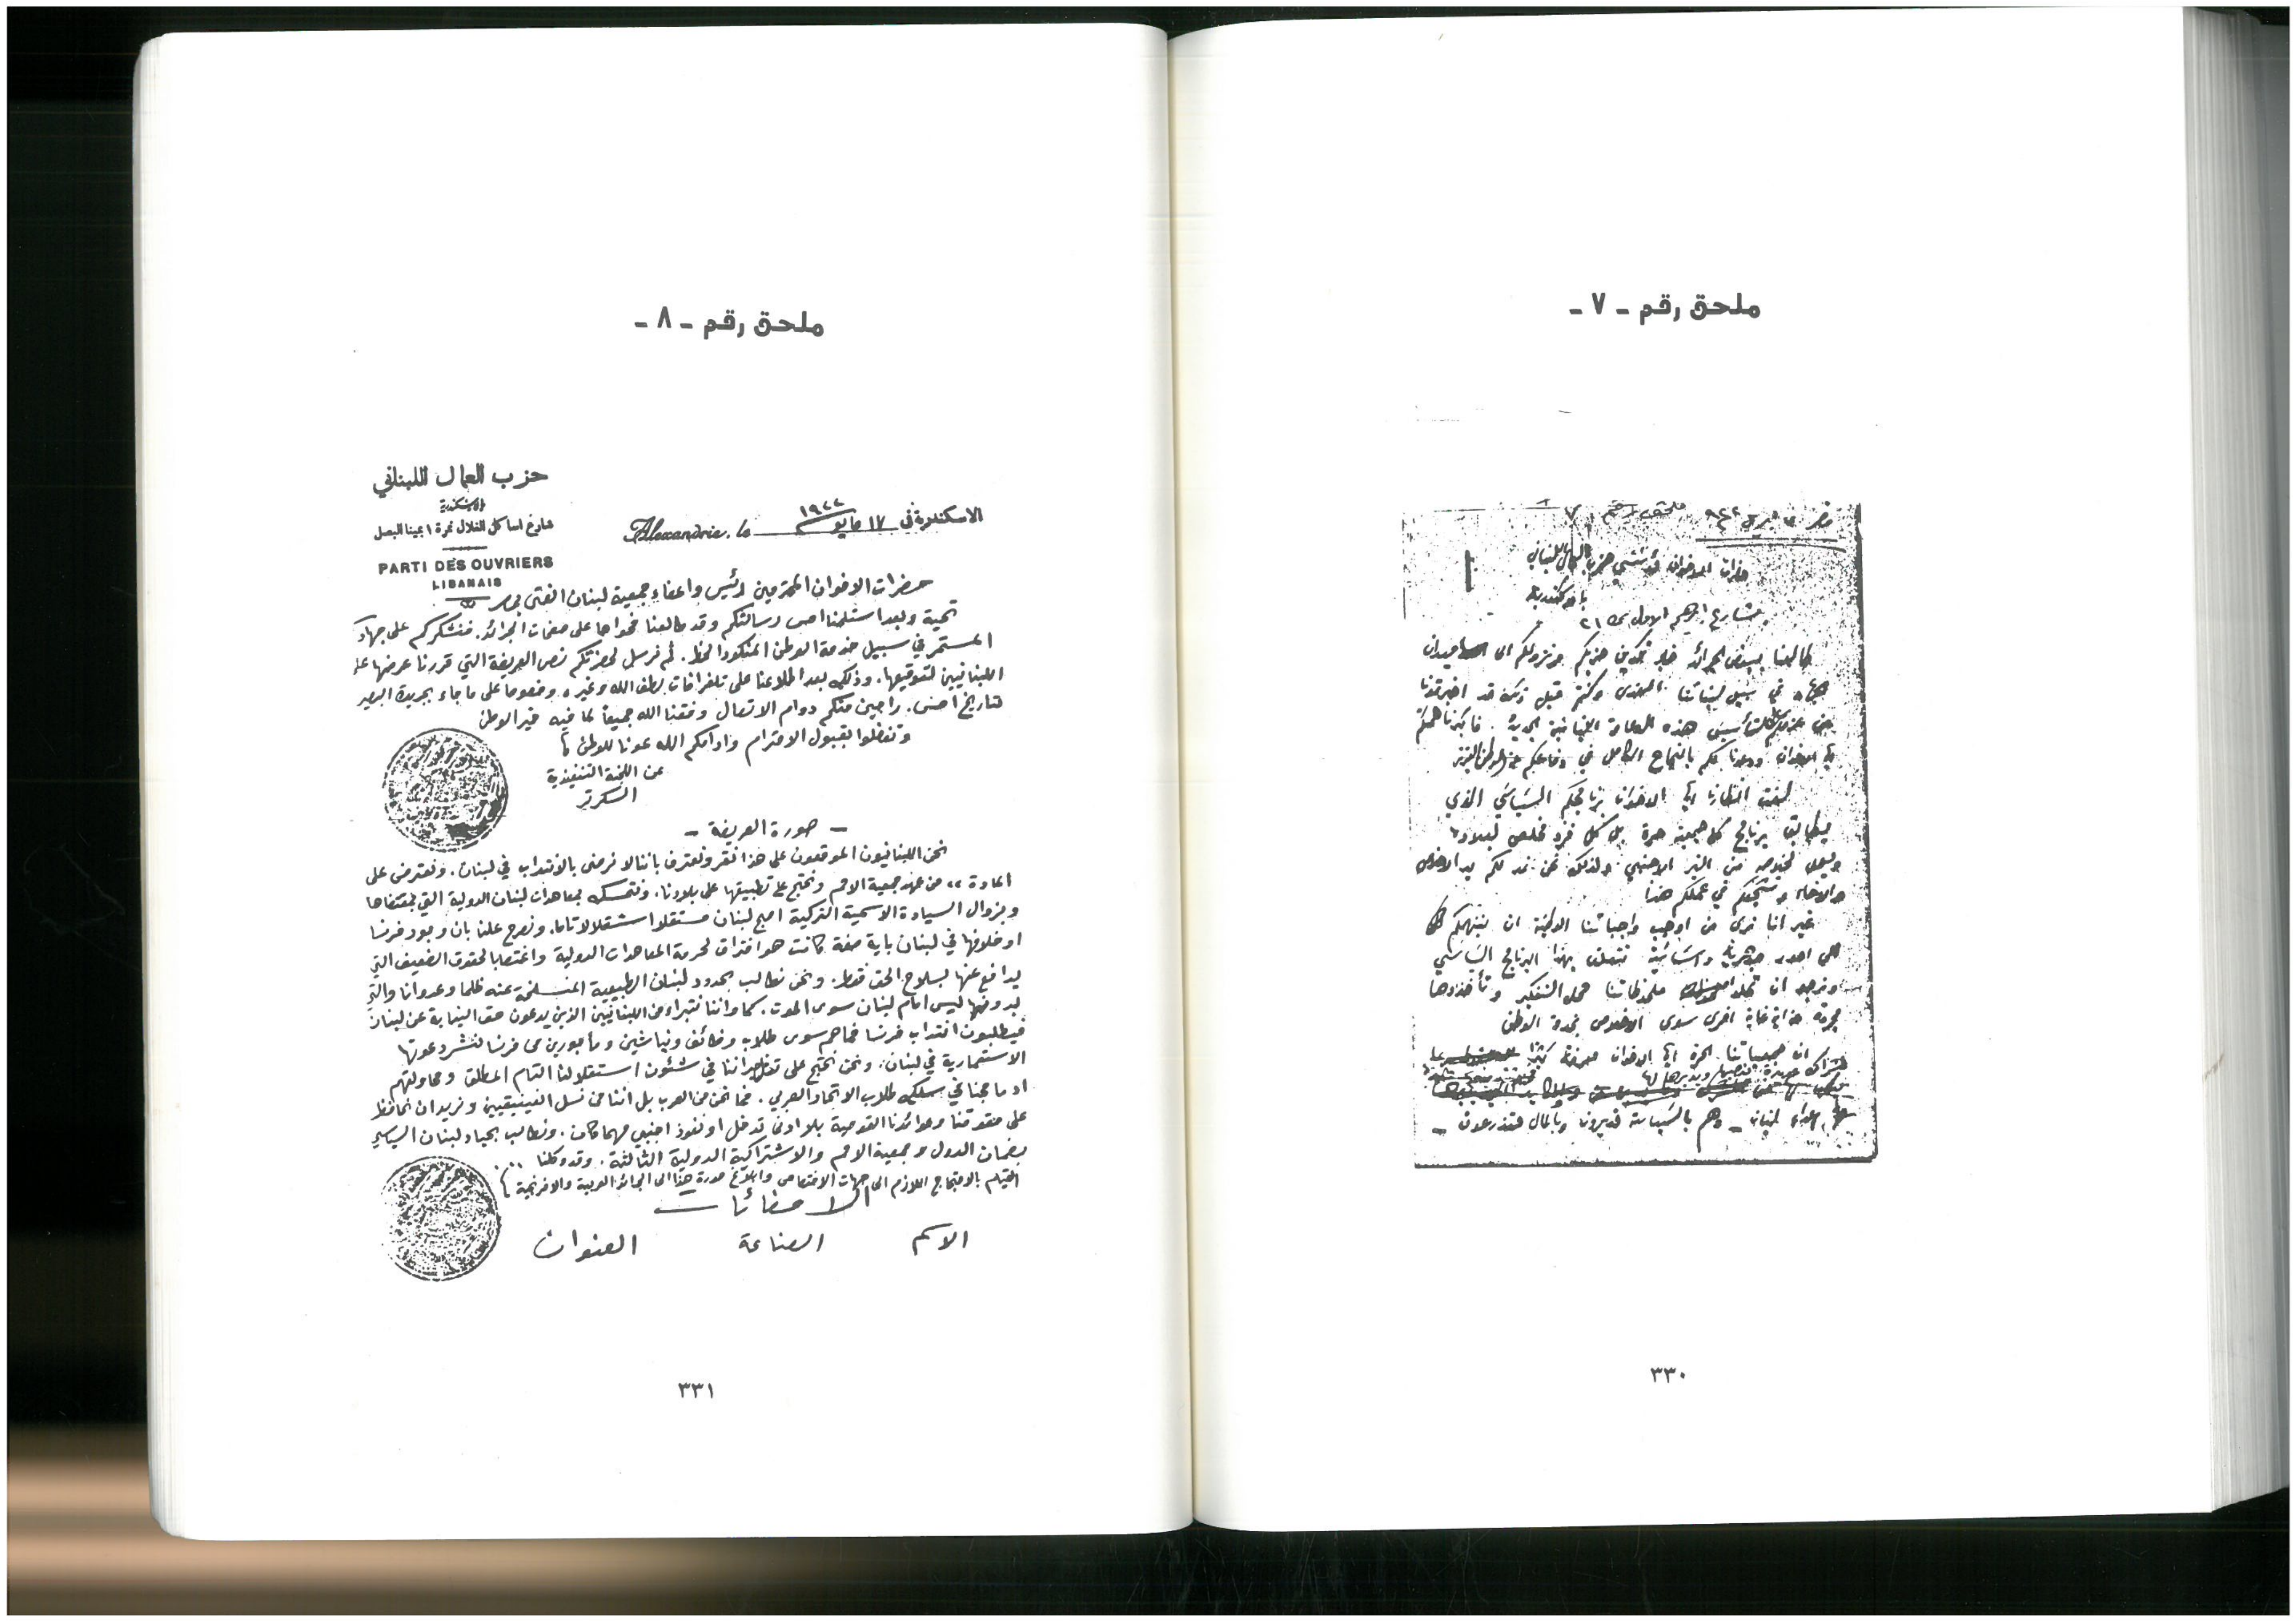 ملحق رقم - ٧ -
ملحق رقم ٧
حضرات الاخوان مؤسسي حزب العمال اللبناني
بشارع ابرهيم الاول
طالعنا ببعض الجرائد خبر تكوين حزبكم ونزولكم الى ميدان
في سبيل لبناننا المفدى وكنتم قبل ذلك قد اخبرتمونا
عن عزمكم تأسيس هذه
ايها الاخوان ودعونا لكم بالنجاح الكامل في دفاعكم عن الوطن العزيز
لفت انظارنا ايها الاخوان برنامجكم السياسي الذي
يطابق برنامج كل جمعية حرة بل كل فرد مخلص لبلاده
من النير الاجنبي ولذلك نحن نمد لكم يد الاخلاص
والاخاء ونشجعكم في عملكم هذا
غير اننا نرى من اوجب واجباتنا الوطنية ان ننبهكم
الى امور جوهرية واساسية تتعلق بهذا البرنامج السياسي
ونرجو ان ملحوظاتنا محل التفكير وتأخذوها
مجردة عن اية غاية اخرى سوى الاخلاص لخدمة الوطن
ان جمعياتنا الحرة ايها الاخوان معرضة كثيرا
لبنان - وهم بالسياسة قديرون وبالمال متذرعون -
٣٣٠
ملحق رقم - ٨ -
حزب العمال اللبناني
الاسكندرية
شارع اساكل الغلال نمرة ١ بمينا البصل
PARTI DES OUVRIERS
LIBANAIS
الاسكندرية في ١٧ مايو ١٩٢٢ Alexandrie, le
حضرات الاخوان المحترمين رئيس واعضاء جمعية لبنان الفتى بمصر
تحية وبعد استلمنا امس رسالتكم وقد طالعنا فحواها على صفحات الجرائد. فنشكركم على جهادكم
المستمر في سبيل خدمة الوطن المنكود الحظ. ثم نرسل لحضرتكم نص العريضة التي قررنا عرضها على
اللبنانيين لتوقيعها. وذلك بعد اطلاعنا على تلغرافات لطف الله وغيره وخصوصا على ما جاء بجريدة البصير
بتاريخ امس. راجين منكم دوام الاتصال وفقنا الله جميعاً لما فيه خير الوطن
وتفضلوا بقبول الاحترام وادامكم الله عونا للوطن
عن اللجنة التنفيذية
السكرتير
- صورة العريضة -
نحن اللبنانيون الموقعون على هذا نقر ونعترف باننا لا نرضى بالانتداب في لبنان. ونعترض على
المادة ٢٢ من عهد جمعية الامم ونحتج على تطبيقها على بلادنا. ونتمسك بمعاهدات لبنان الدولية التي بمقتضاها
وبزوال السيادة الاسمية التركية اصبح لبنان مستقلا استقلالا تاما. ونصرح علنا بان وجود فرنسا
او خلافها في لبنان باية صفة كانت هو اختراق لحرمة المعاهدات الدولية واغتصابا لحقوق الضعيف التي
يدافع عنها بسلاح الحق فقط. ونحن نطالب بحدود لبنان الطبيعية المنسلخة عنه ظلما وعدوانا والتي
بدونها ليس امام لبنان سوى الموت. كما واننا نتبراء من اللبنانيين الذين يدعون حق النيابة عن لبنان
فيطلبون انتداب فرنسا فما هم سوى طلاب وظائف ونياشين ومأجورين من فرنسا لنشر دعوتها
الاستعمارية في لبنان. ونحن نحتج على تدخل جيراننا في شئون استقلالنا التام المطلق ومحاولتهم
ادماجنا في سلك طلاب الاتحاد العربي. فما نحن من العرب بل اننا من نسل الفينيقيين ونريد ان نحافظ
على حقوقنا وعوائدنا القومية بلا ادنى تدخل او نفوذ اجنبي مهما كان. ونطالب بحياد لبنان السياسي
بضمان الدول وجمعية الامم والاشتراكية الدولية الثالثة. وقد وكلنا
القيام بالاحتجاج اللازم الى جهات الاختصاص وابلاغ صورة هذا الى الجرائد العربية والافرنجية
الامضاءات
الاسم الصناعة العنوان
٣٣١